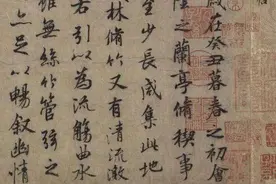 歲在癸丑暮春之初會
陰之蘭亭脩稧事
至少長咸集此地
林脩竹又有清流激
右引以為流觴曲水
雖無絲竹管弦之
亦足以暢敘幽情